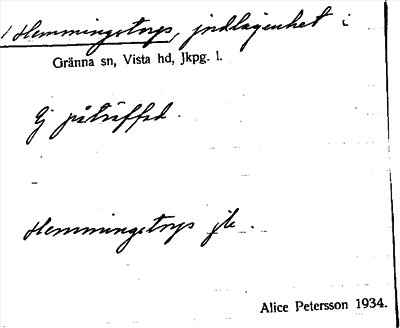 Hemmingstorp, jordlägenhet i
Gränna sn, Vista hd, Jkpg. l.
Ej påträffad.
Hemmingstorps jb.
Alice Petersson 1934.